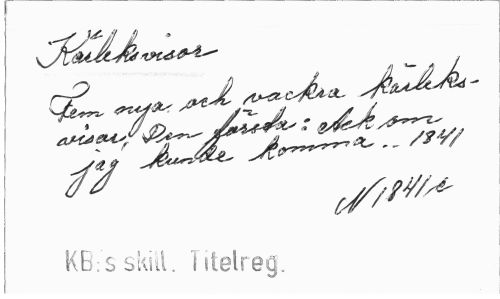 Kärleksvisor
Fem nya och vackra kärleks-
visor, Den första: Ack om
jag kunde komma.. 1841
N 1841 c
KB:s skill. Titelreg.